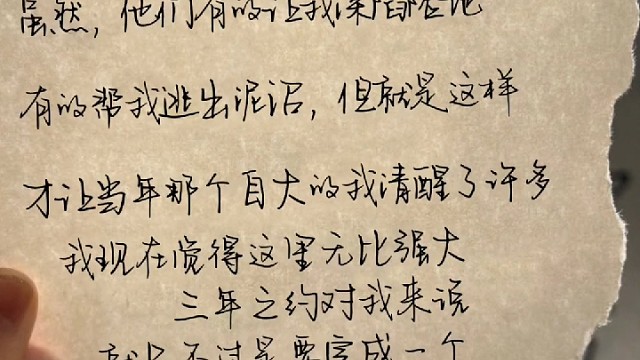 虽然，他们有的让我深陷
有的帮我逃出泥沼，但就是这样
才让当年那个自大的我清醒了许多
我现在觉得这里无比强大
三年之约对我来说
不过是要完成一个